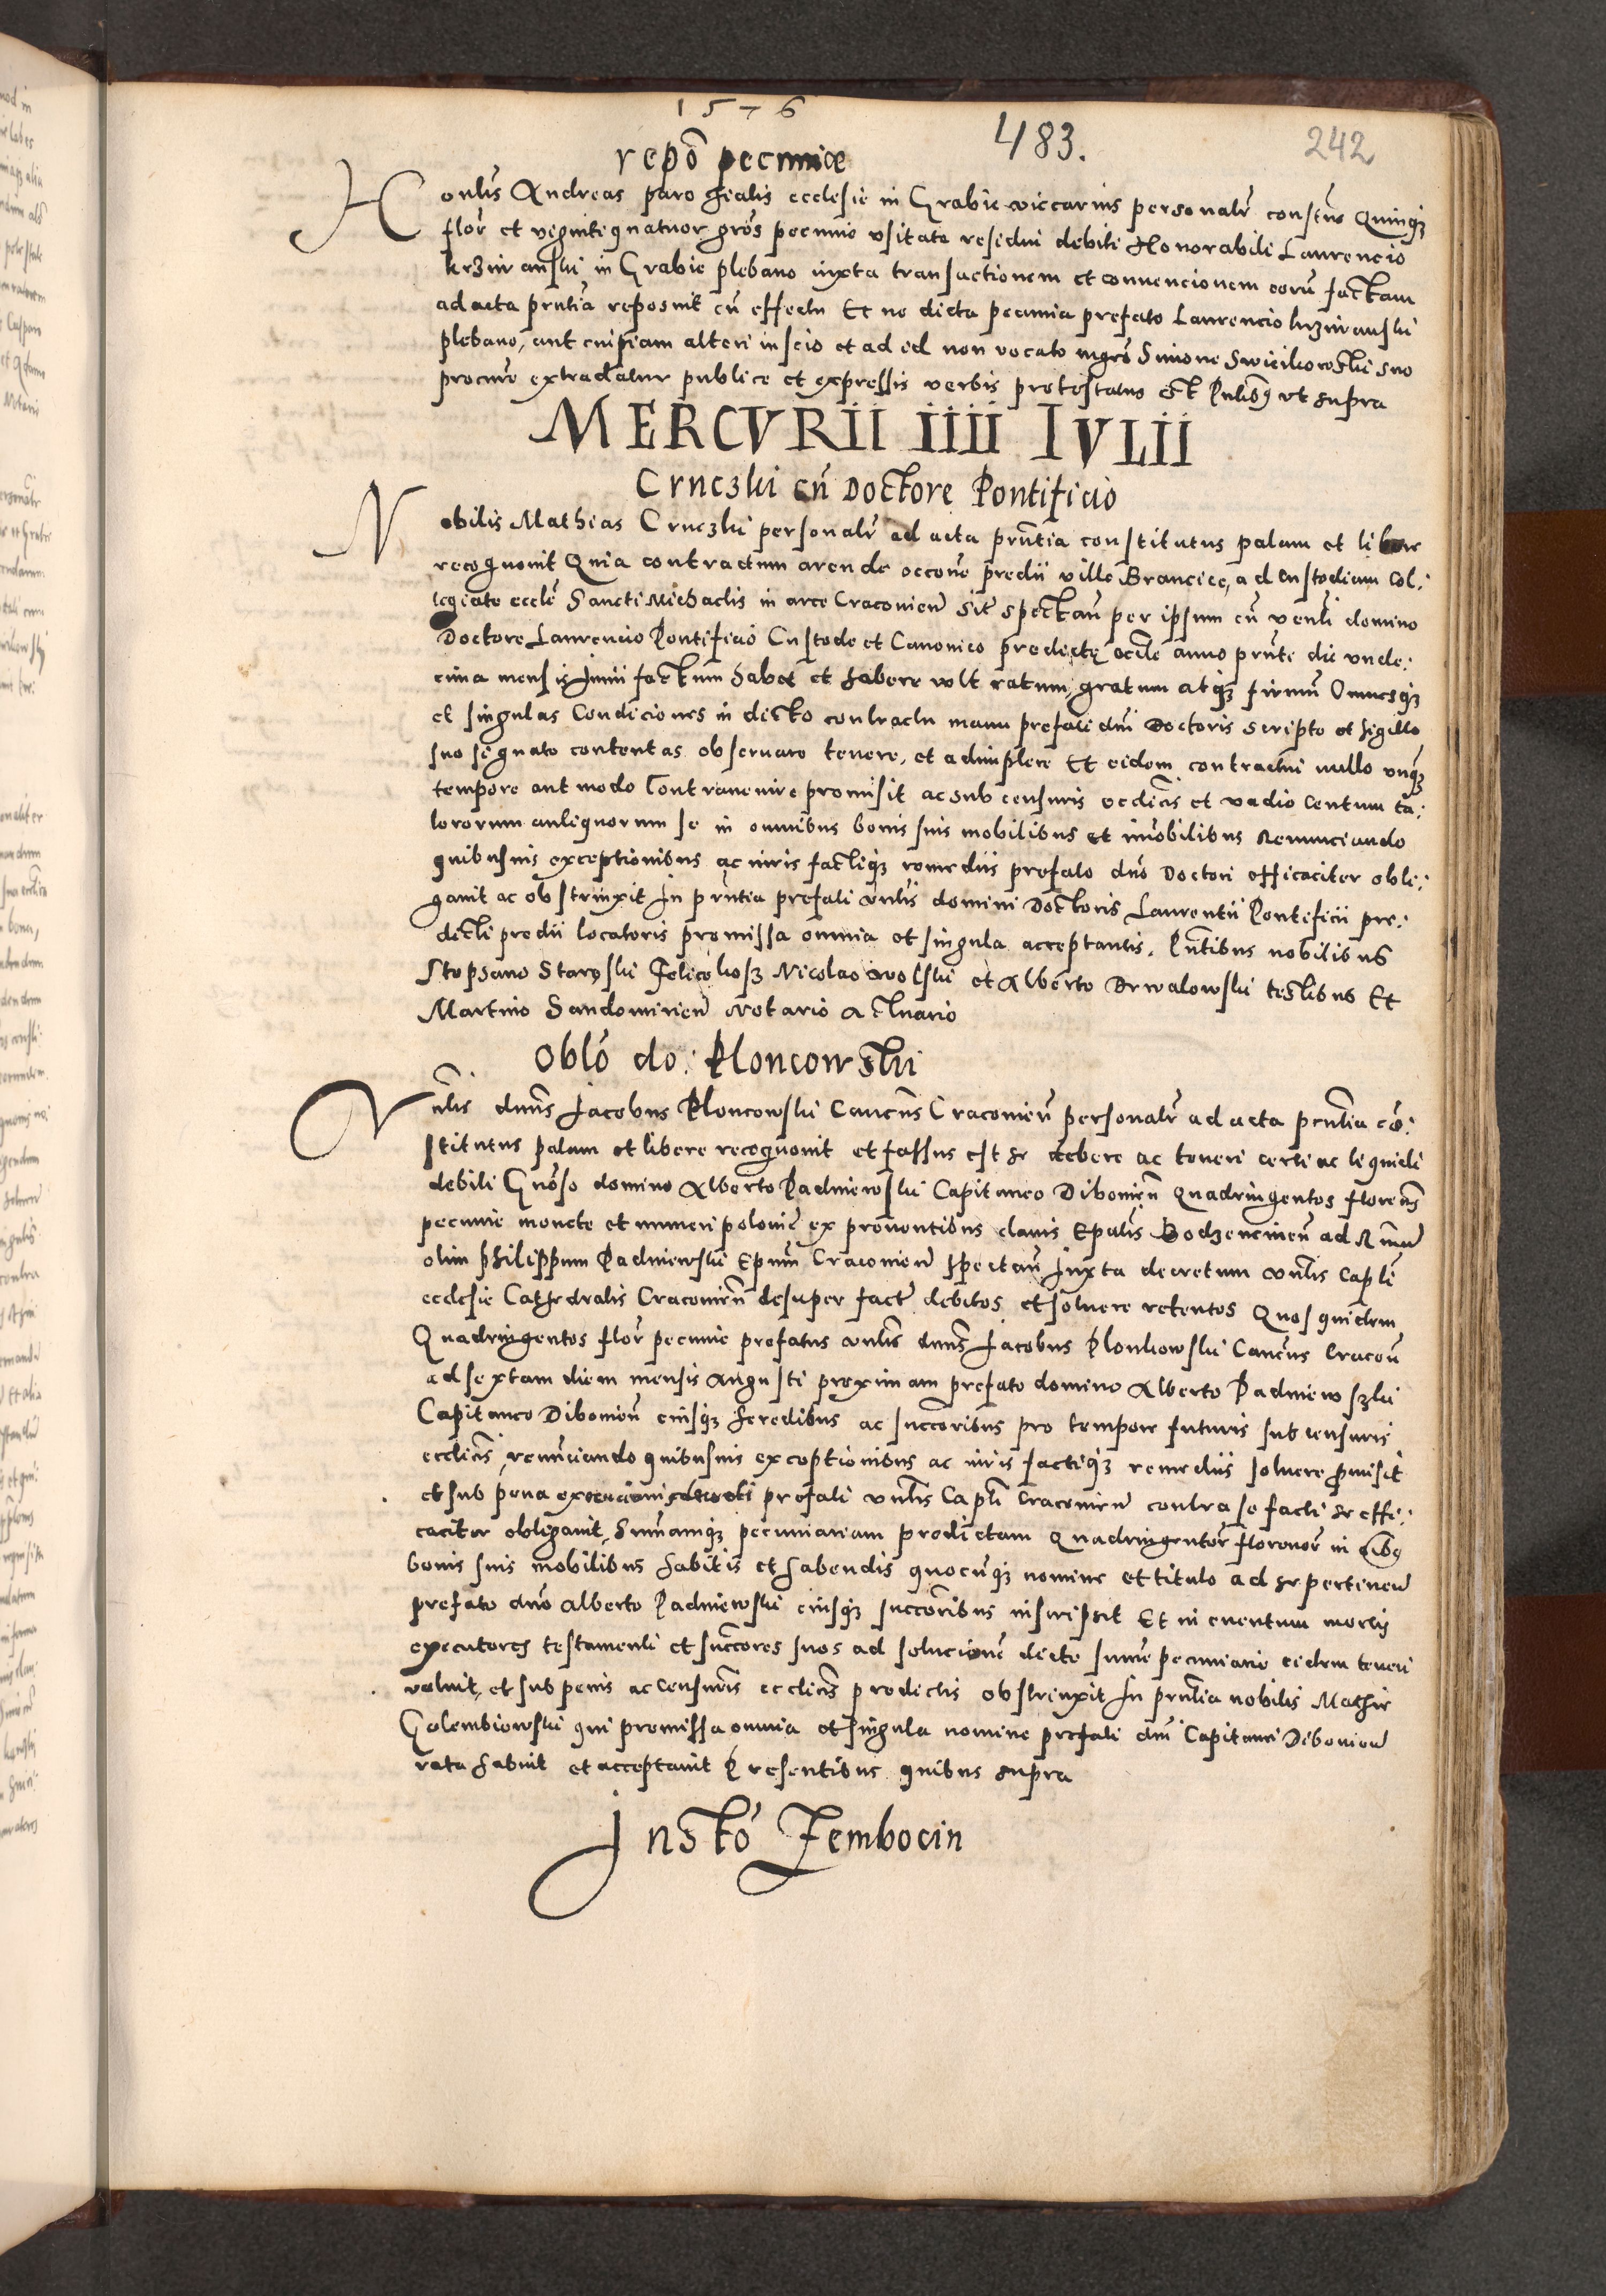 1576
483.
242
repō pecuniæ
Honlis Andreas parochialis ecclesie in Grabie viccarius personalr constus Quinqz
flor et vigintiquatuor gros pecunie vsitate residui debiti Honorabili Laurencio
in Grabie plebano iuxta transactionem et conuencionem eorū factam
ad acta prntia reposuit cū effectu Et ne dicta pecunia prefato Laurencio
plebano, aut cuipiam alteri inscio et ad id non vocato mgro Simone suo
procure extradatur publice et expressis verbis protestatus est Pntibus vt supra
MERCVRII IIII IVLII
Cruczki cū Doctore Pontificio
Nobilis Mathias Cruczki personalr ad acta prntia constitutus palam et libere
recognouit Quia contractum arende occone predii ville Brancice, ad Custodiam Col:
legiate eccle Sancti Michaelis in arce Cracouien sit spectan per ipsum cū venli domino
Doctore Laurencio Pontificio Custode et Canonico predicte eccle anno prnte die vnde:
cima mensis Junii factum habet et habere vult ratum, gratum atqz firmū Omnesqz
et singulas Condiciones in dicto contractu manu prefati dni Doctoris scripto et sigillo
suo signato contentas obseruare tenere, et adimplere Et eidem contractui nullo vnqz
tempore aut modo Contrauenire promisit ac sub censuris ecclicis et vadio Centum ta:
lororum antiquorum se in omnibus bonis suis mobilibus et imobilibus Renunciando
quibusuis exceptionibus ac iuris factiqz remediis prefato dno Doctori efficaciter obli:
gauit ac obstrinxit In prntia prefati vnlis domini Doctoris Laurentii Pontificii pre:
dicti predii locatoris premissa omnia et singula acceptantis. Pntibus nobilibus
Stephano Staryski Nicolao Wolski et Alberto Drwalowski testibus Et
Martino Sandomirien Notario Actuario
Oblo do: Plonczowski
Vnlis dnus Jacobus Plonczowski Cancus Cracouien personalr ad acta prntia cō:
stitutus palam et libere recognouit et fassus est se debere ac teneri certi ac liquidi
debiti Gnoso domino Alberto Padniewski Capitaneo Dibouien Quadringentos florenos
pecunie monete et numeri polonic ex prouentibus clauis Epalis Bodzencinen ad Rmum
olim Philippum Padniewski Epum Cracouien spectan Iuxta decretum vnlis Capli
ecclesie Cathedralis Cracouien desuper fact debitos et soluere retentos Quosquidem
Quadringentos flor pecunie prefatus vnlis dnus Jacobus Plonkowski Cancus Cracou
ad sextam diem mensis Augusti proximam prefato domino Alberto Padniewszki
Capitaneo Dibouien eiusqz heredibus ac succoribus pro tempore futuris sub censuris
ecclicis, renunciando quibusuis exceptionibus ac iuris factiqz remediis soluere promisit
et sub pena prefati vnlis Capli Cracouien contra se facti se effi:
caciter obligauit, Summamqz pecuniariam predictam Quadringentor florenor in oibs
bonis suis mobilibus habitis et habendis quocunqz nomine et titulo ad se pertinen
prefato dno Alberto Padniewski eiusqz succoribus inscripsit Et in euentum mortis
executores testamenti et succores suos ad solucione dicte sume pecuniarie eidem teneri
voluit, et sub penis ac Censuris ecclicis predictis obstrinxit In prntia nobilis Mathie
Golembiowski qui premissa omnia et singula nomine prefati dni Capitanei Dibouien
rata habuit et acceptauit Presentibus quibus supra
Insto Zembocin